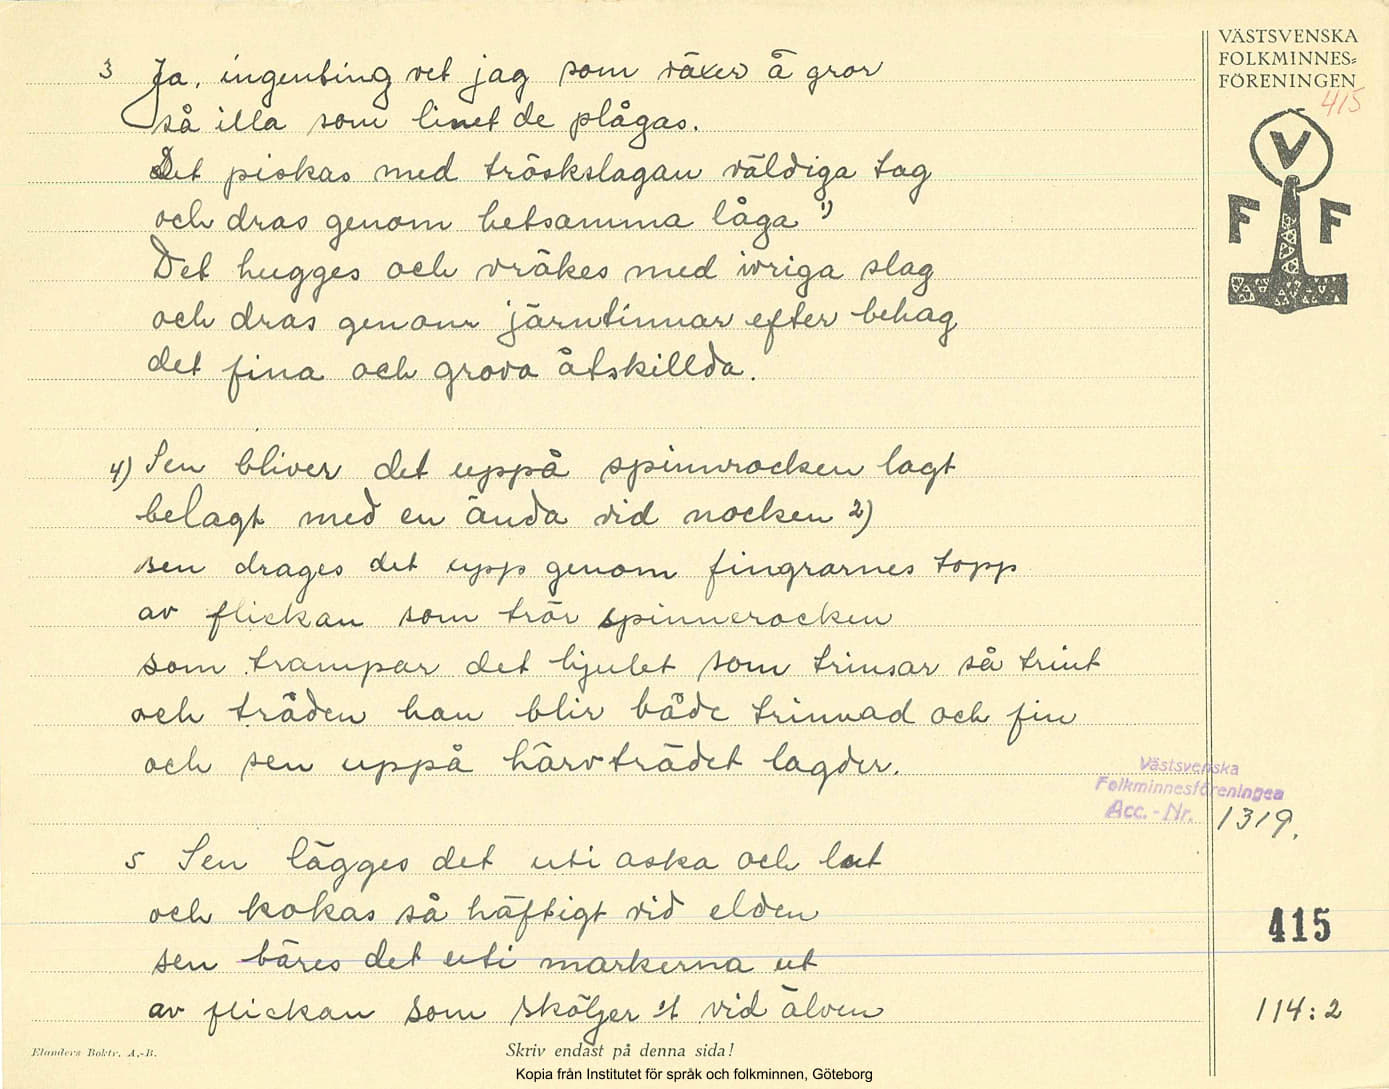 VÄSTSVENSKA
FOLKMINNES-
FÖRENINGEN
415
V
F F
3 Ja, ingenting vet jag som växer å gror
så illa som linet de plågas.
Det piskas med tröskslagan väldiga tag
och dras genom hetsamma låga 1)
Det hugges och vräkes med ivriga slag
och dras genom järntinnar efter behag
det fina och grova åtskillda.
4) Sen bliver det uppå spinnrocken lagt
belagt med en ända vid nocken 2)
sen drages det upp genom fingrarnes topp
av flickan som trör spinnerocken
som trampar det hjulet som trinsar så trint
och tråden han blir både trinnad och fin
och sen uppå härvträdet lagder.
Västsvenska
Folkminnesföreningen
Acc.-Nr. 1319.
5 Sen lägges det uti aska och lut
och kokas så häftigt vid elden
415
sen bäres det uti markerna ut
av flickan som sköljer 't vid älven
114:2
Elanders Boktr. A.-B.
Skriv endast på denna sida!
Kopia från Institutet för språk och folkminnen, Göteborg